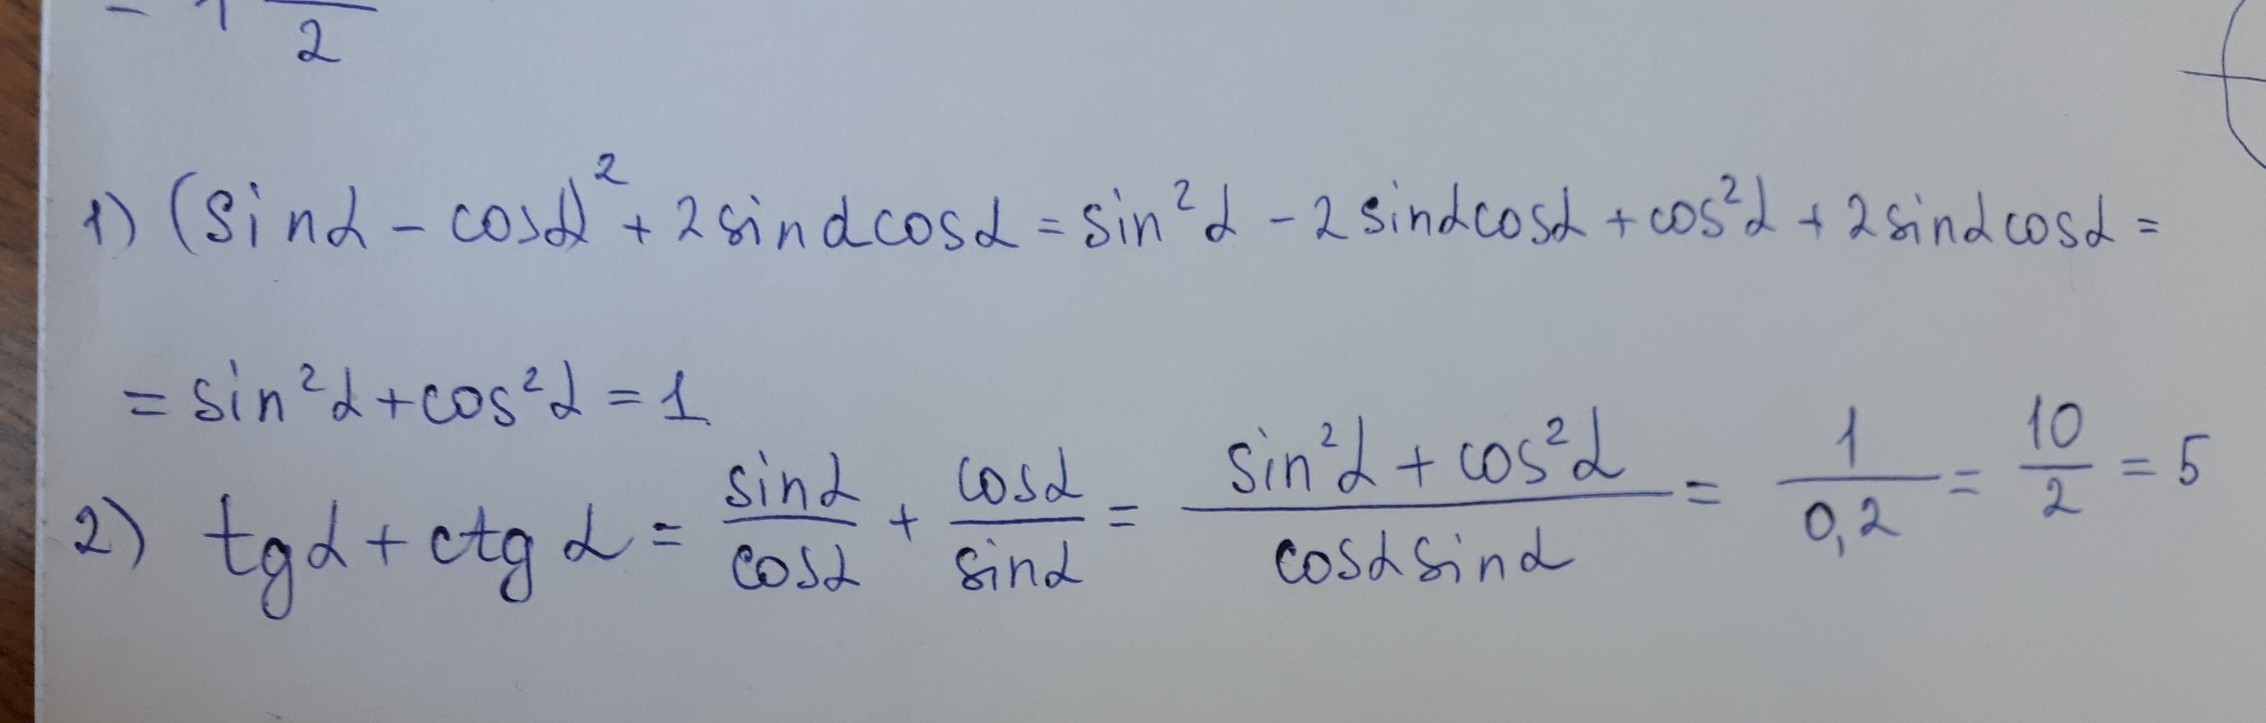 2
1) (sinα - cosα)² + 2sinαcosα = sin²α - 2sinαcosα + cos²α + 2sinαcosα =
= sin²α + cos²α = 1
2) tgα + ctgα = sinα/cosα + cosα/sinα = (sin²α + cos²α)/(cosα sinα) = 1/0,2 = 10/2 = 5